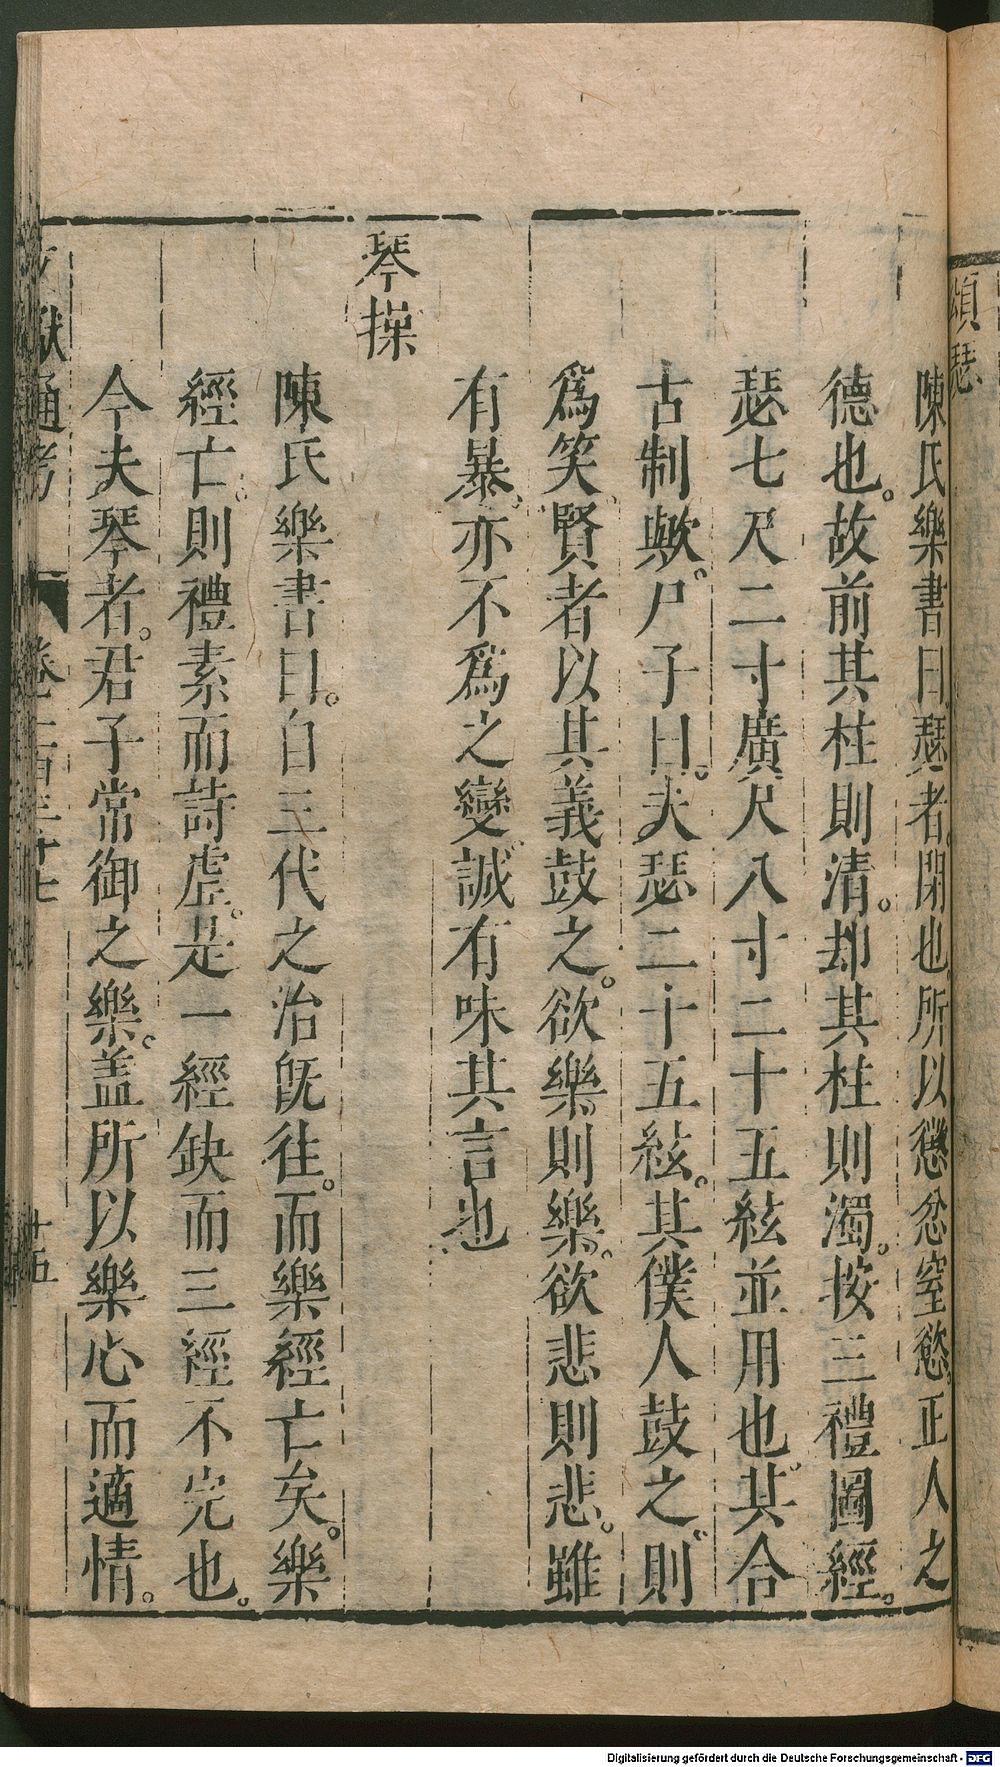 頌瑟
陳氏樂書曰瑟者閉也所以懲忿窒慾正人之
德也。故前其柱則清。却其柱則濁。按三禮圖經。
瑟七尺二寸廣尺八寸二十五絃並用也其合
古制歟。尸子曰。夫瑟二十五絃。其僕人鼓之則
爲笑賢者以其義鼓之。欲樂則樂。欲悲則悲。雖
有暴。亦不爲之變誠有味其言也
琴操
陳氏樂書曰。自三代之治旣往。而樂經亡矣。樂
經亡。則禮素而詩虛。是一經缺而三經不完也。
今夫琴者。君子常御之樂。盖所以樂心而適情。
文獻通考 卷一百三十七 十五
Digitalisierung gefördert durch die Deutsche Forschungsgemeinschaft - DFG